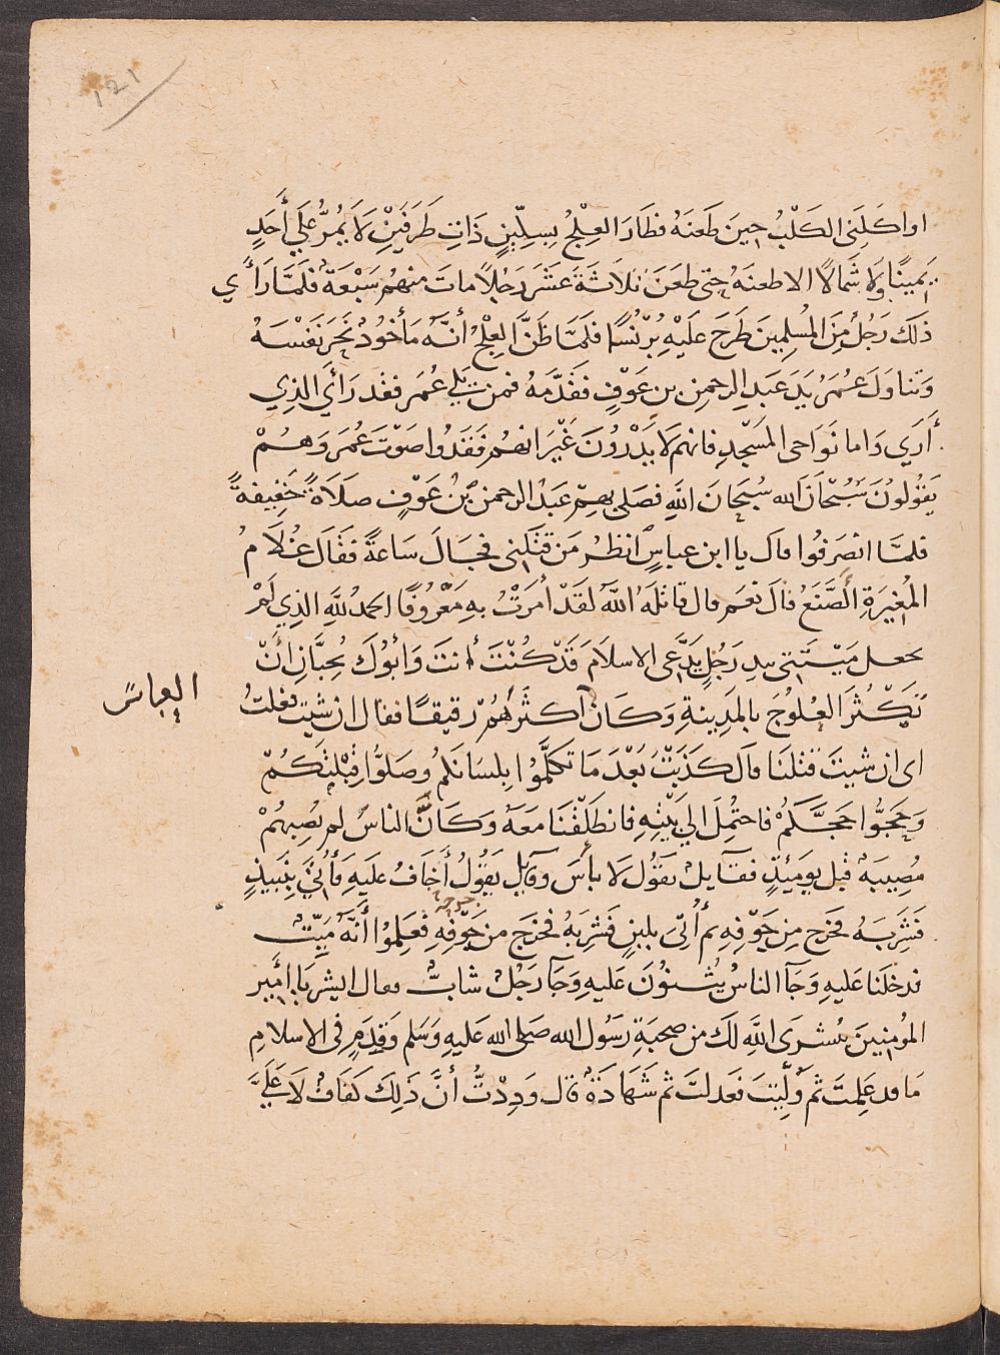 ١٢١
او اكَلَنِى الكَلْبُ حِينَ طَعَنَهُ فطَارَ العِلْجُ بِسِكِّينٍ ذَاتِ طَرَفَيْنِ لَا يَمُرُّ عَلَي أَحَدٍ
يَمِينًا وَلَا شَمَالًا الا طعنَهُ حتى طَعَنَ ثلاثَةَ عَشَرَ رَجُلًا ماتَ منهُم سَبْعَةٌ فَلَمَّا رَأَي
ذلك رَجُلٌ مِنَ المُسلِمينَ طَرَحَ عَلَيْهِ بُرْنُسًا فلَمَّا ظَنَّ العِلْجُ أنَّهُ مَأخُوذٌ نَحَرَ نَفْسَهُ
وَتناوَلَ عُمَرُ يَدَ عَبدِ الرحمنِ بن عَوْفٍ فقَدَّمَهُ فمن يَلي عُمَر فقد رَأَي الذِي
أَرَي وَاما نَوَاحى المَسْجِدِ فانهم لَا يَدْرُونَ غَيْرَ انهُم فَقَدُوا صَوْتَ عُمَرَ وَهُمْ
يَقُولُونَ سُبْحَانَ الله سُبحَانَ اللهِ فصَلى بهِم عَبْدُ الرحمنِ بْنُ عَوْفٍ صَلَاةً خَفِيفةً
فلمَّا انصَرفُوا قال يا ابن عباسٍ انظُر مَن قَتَلَنِى فجَالَ سَاعةً فقَال غُلَامُ
المُغِيرَةِ الصَّنَعُ قالَ نعَم قال قاتلَهُ اللهُ لقَدْ أمَرْتُ بهِ مَعْرُوفًا الحمدُ للهِ الذِي لَمْ
يجعل مَيْتَتِى بيدِ رَجُلٍ يَدَّعى الاسلَامَ قَدْ كُنْتَ أنتَ وَأبُوكَ تُحِبَّانِ أنْ
تَكْثُرَ العُلُوجُ بالمَدِينةِ وَكَانَ أكثَرَهُمْ رَقِيقًا فقال ان شيت فعلتُ
العباسُ
اى ان شيتَ قتلنَا قَال كَذَبْتَ بَعْدَ مَا تكَلَّمُوا بِلسَانكُم وصَلَّوْا قِبْلتَكُمْ
وَحَجُّوا حَجَّكُمْ فاحتُمِلَ الي بَيْتِهِ فانطَلَقْنَا مَعَهُ وَكَانَّ الناسَ لم تُصِبهُمْ
مُصِيبَةٌ قبل يومَئِذٍ فقآيلٌ يقولُ لَا بأسَ وقآيل يَقُولُ أَخَافُ علَيهِ فَأُتِيَ بنَبِيذٍ
فَشَرِبَهُ فخرَج مِن جَوْفِهِ ثم أُتىَ بلبَنٍ فشرِبَهُ فخرَج من جَوْفِهِ فعَلِمُوا أَنَّهُ مَيِّتٌ
جرحه
فدخلنا عَليهِ وَجَآ الناسُ يُثنوُنَ عَليهِ وَجَآ رَجُلٌ شابٌّ فقال ابشر يَا امِير
المُومنِينَ بِبُشرَى اللهِ لكَ من صحبَةِ رَسُول الله صَلى الله عَليهِ وَسَلم وَقِدَمٍ فى الاسلامِ
مَا قد عَلِمتَ ثم وُلِّيتَ فعَدلتَ ثم شَهَادَةٌ قال وَدِدْتُّ أنَّ ذلِكَ كَفَافٌ لَا عَلَيَّ